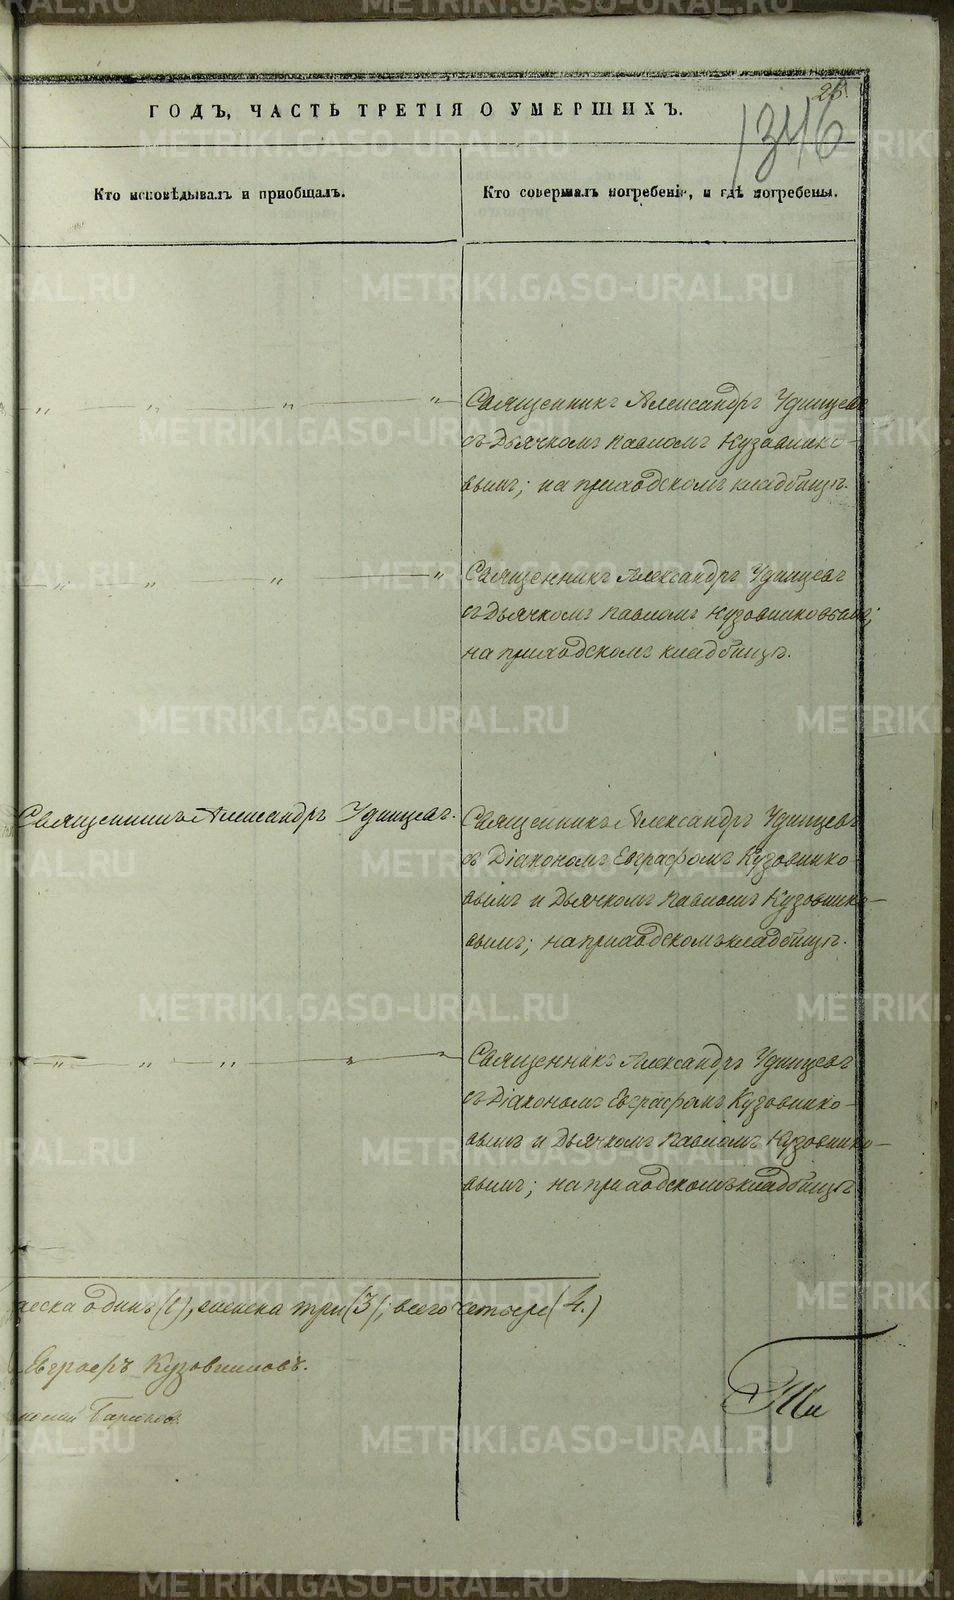 25.
1346
ГОДЪ, ЧАСТЬ ТРЕТІЯ О УМЕРШИХЪ.
Кто исповѣдывалъ и пріобщалъ.
Кто совершалъ погребеніе, и гдѣ погребены.
Священникъ Александръ Удинцевъ
съ Дьячкомъ Павломъ Кузовнико-
вымъ; на приходскомъ кладбищѣ.
Священникъ Александръ Удинцевъ
съ Дьячкомъ Павломъ Кузовниковымъ;
на приходскомъ кладбищѣ.
Священникъ Александръ Удинцевъ.
Священникъ Александръ Удинцевъ
съ Діакономъ Евграфомъ Кузовнико-
вымъ и Дьячкомъ Павломъ Кузовнико-
вымъ; на приходскомъ кладбищѣ.
Священникъ Александръ Удинцевъ
съ Діакономъ Евграфомъ Кузовнико-
вымъ и Дьячкомъ Павломъ Кузовнико-
вымъ; на приходскомъ кладбищѣ
жеска одинъ (1), женска три (3); всего четыре (4.)
Евграфъ Кузовниковъ.
METRIKI.GASO-URAL.RU